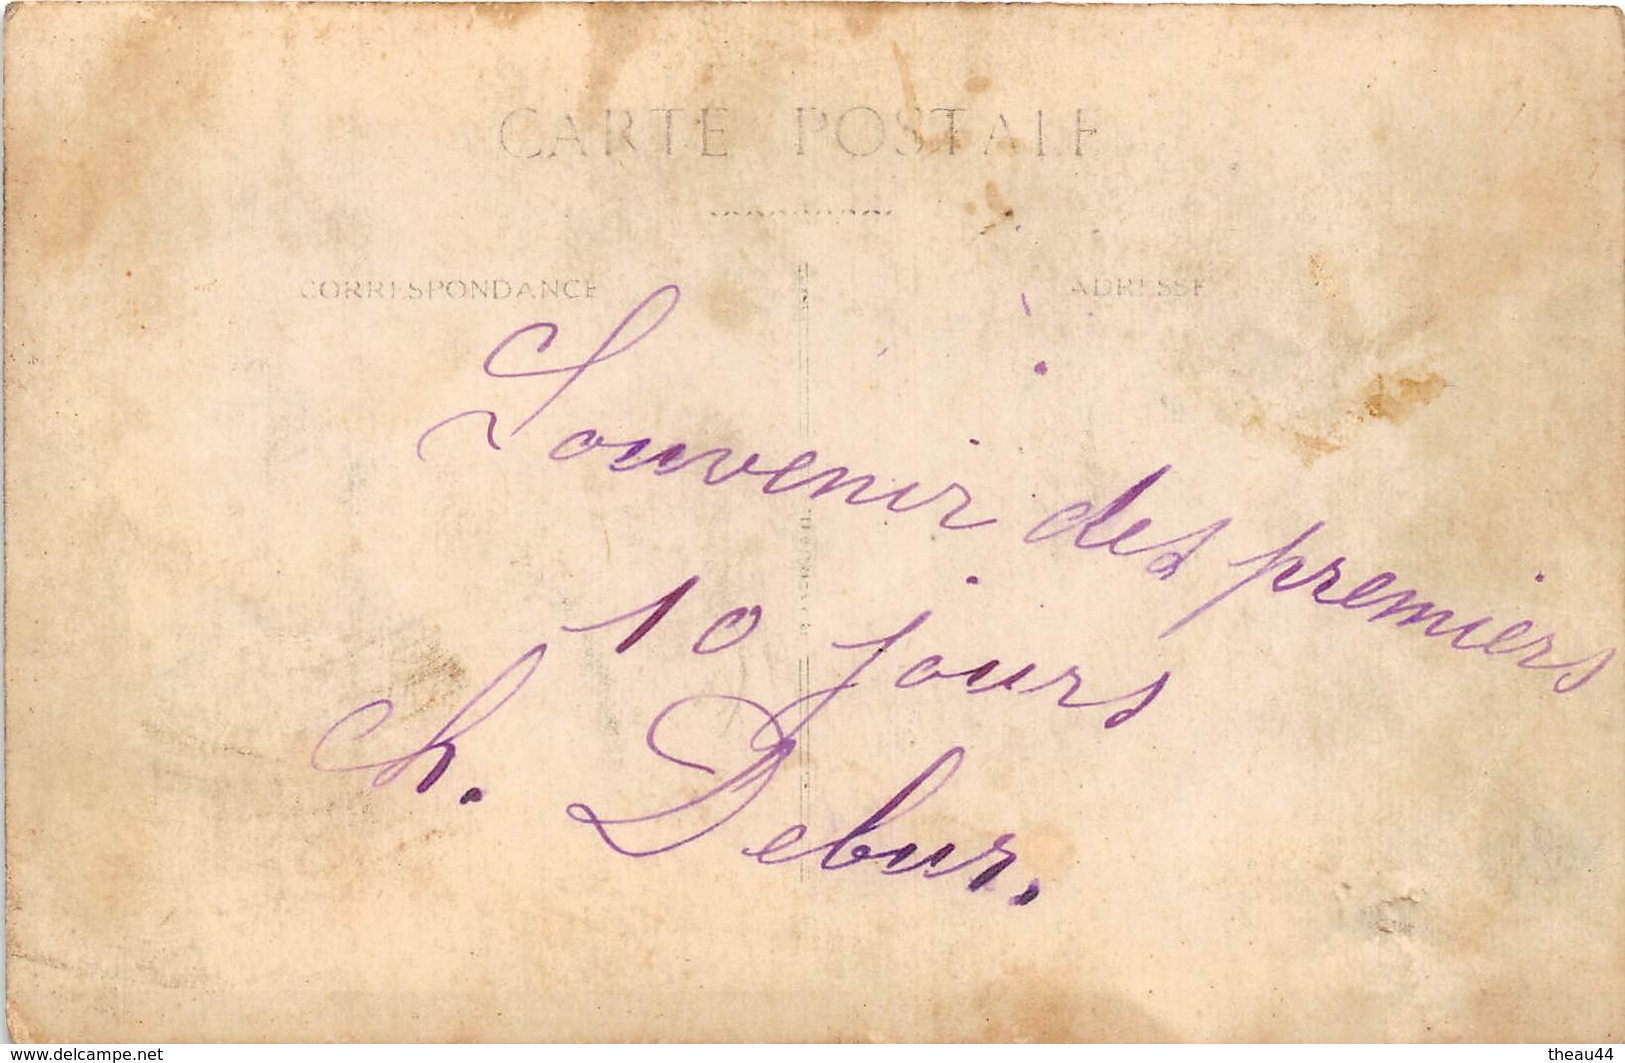 CARTE POSTALE
CORRESPONDANCE
ADRESSE
Souvenir des premiers
10 jours
Ch. Debur.
www.delcampe.net
theau44